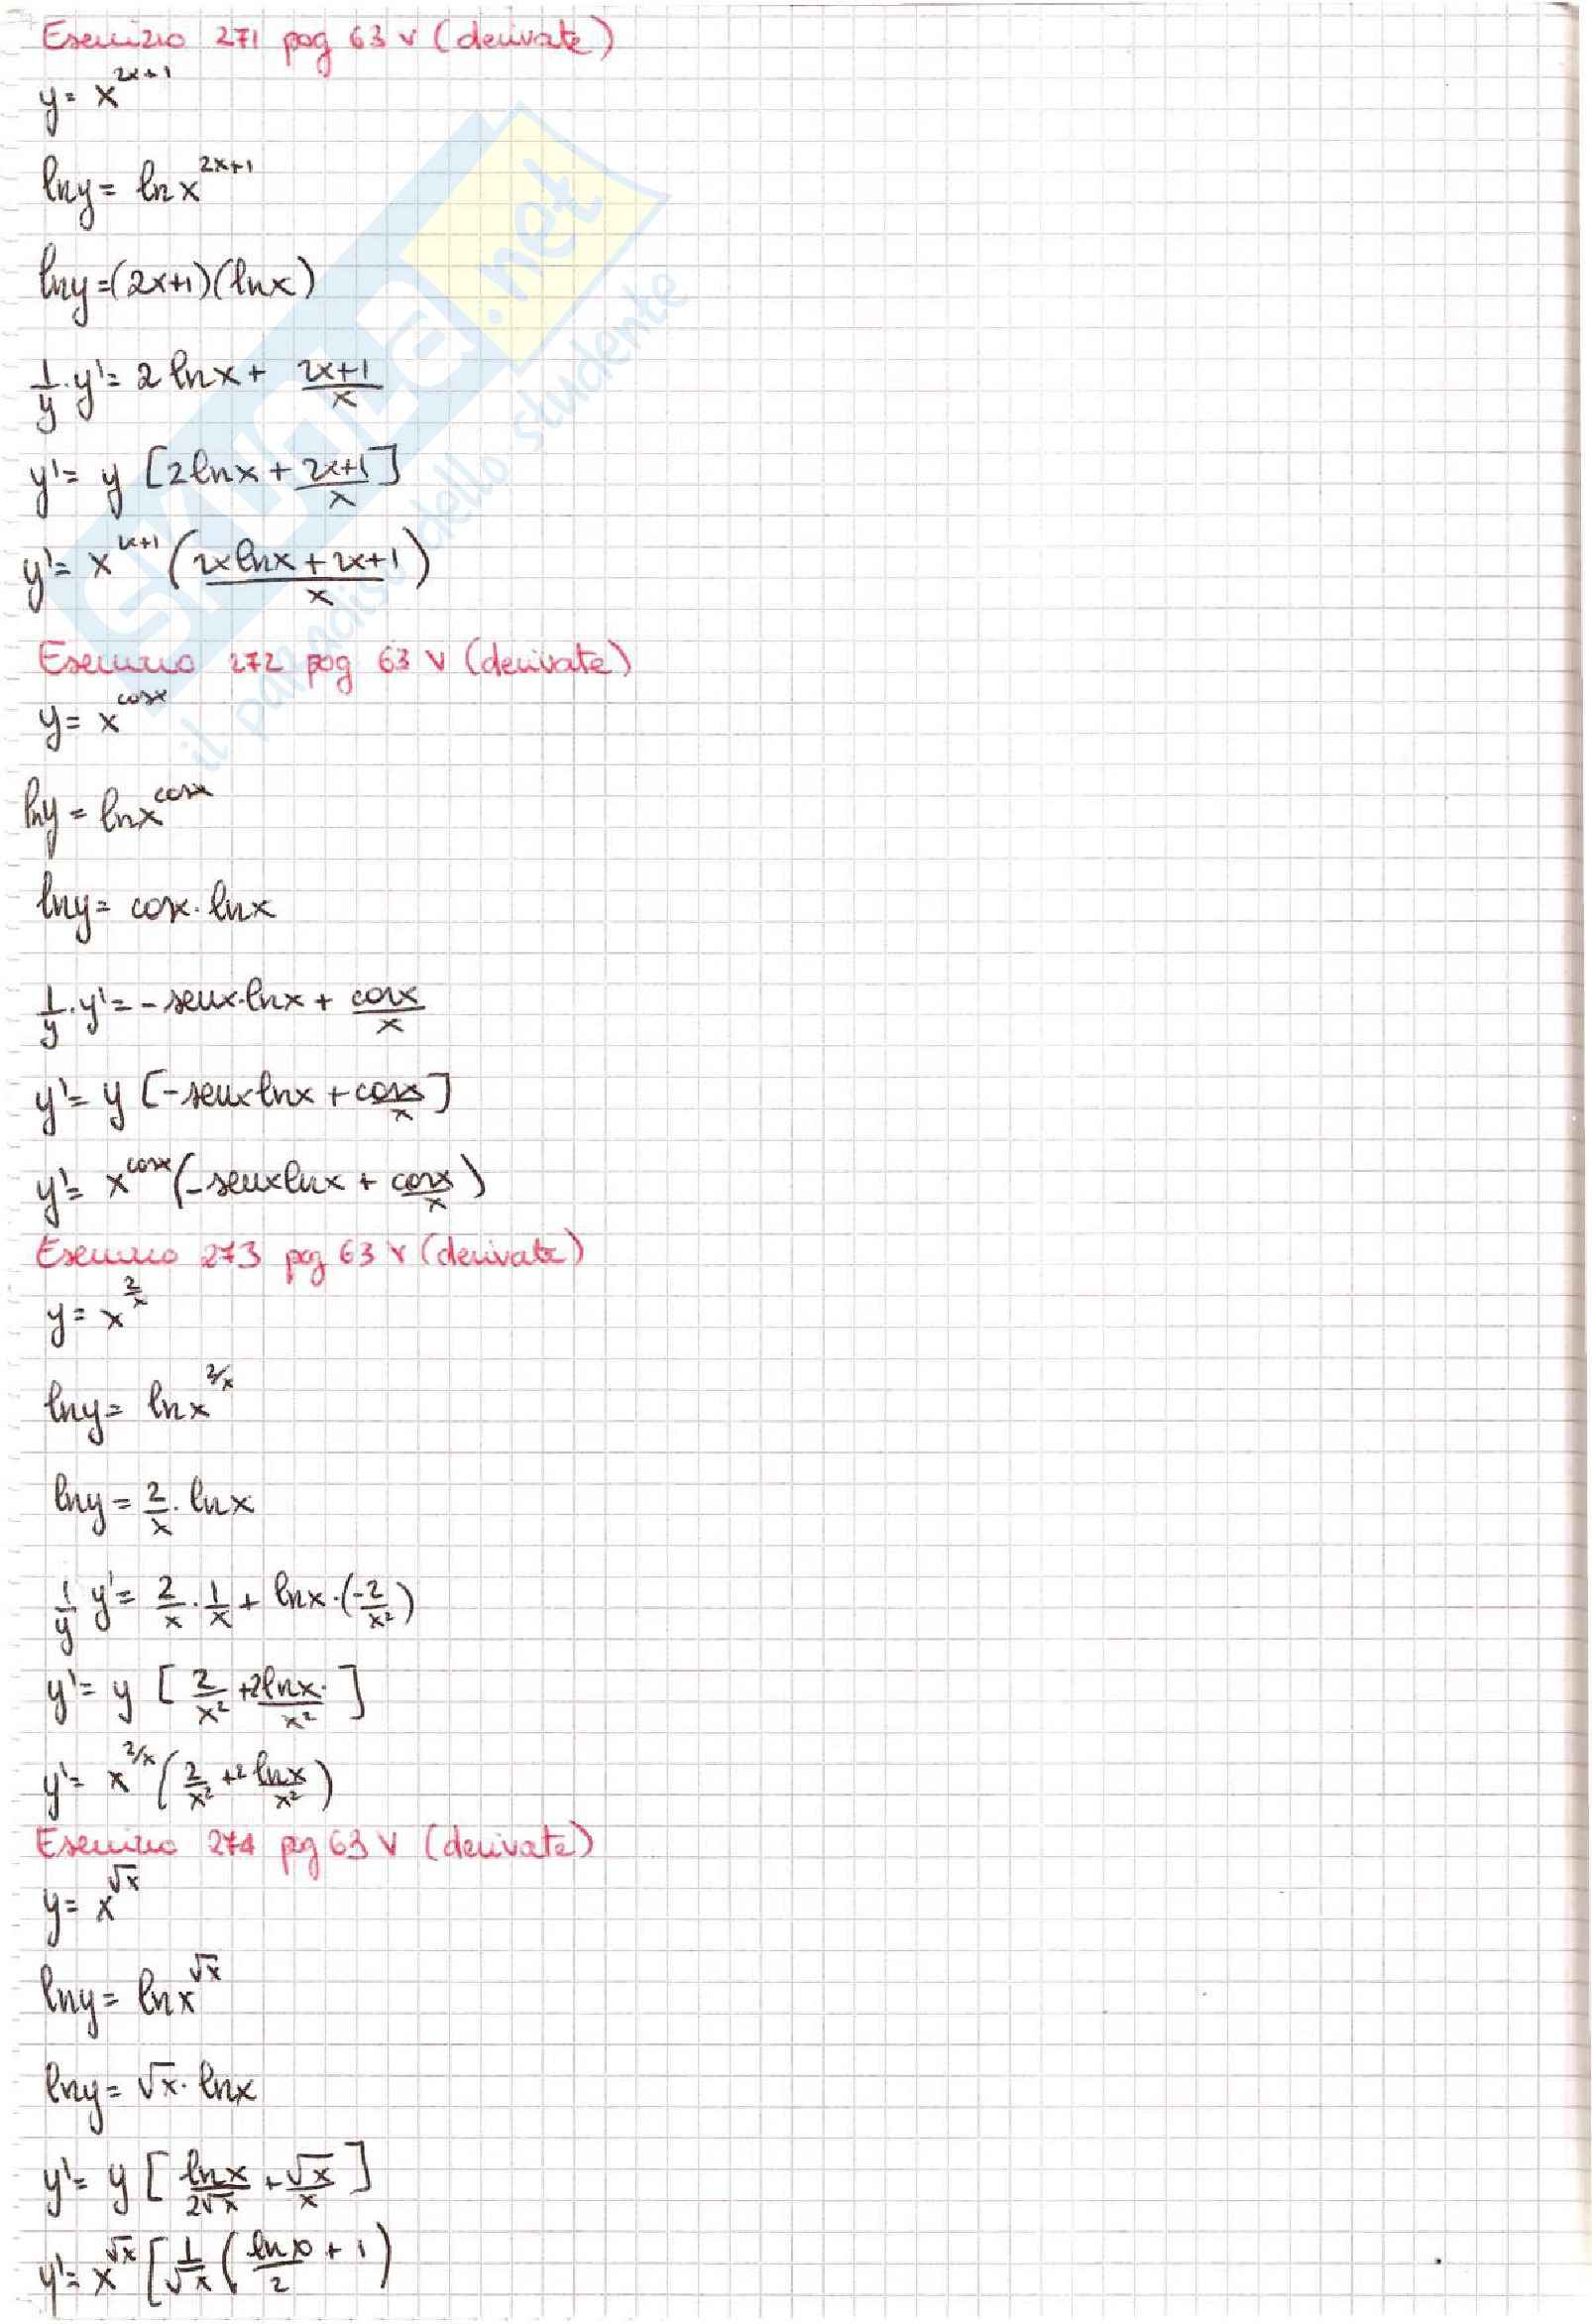 Esercizio 271 pag 63 V (derivate)
y = x^(2x+1)
lny = lnx^(2x+1)
lny = (2x+1)(lnx)
1/y · y' = 2lnx + (2x+1)/x
y' = y [2lnx + (2x+1)/x]
y' = x^(2x+1) ((2xlnx + 2x+1)/x)
Esercizio 272 pag 63 V (derivate)
y = x^cosx
lny = lnx^cosx
lny = cosx · lnx
1/y · y' = -senx·lnx + cosx/x
y' = y [-senxlnx + cosx/x]
y' = x^cosx (-senxlnx + cosx/x)
Esercizio 273 pag 63 V (derivate)
y = x^(2/x)
lny = lnx^(2/x)
lny = 2/x · lnx
1/y y' = 2/x · 1/x + lnx · (-2/x²)
y' = y [2/x² + 2lnx·/x²]
y' = x^(2/x) (2/x² + 2 lnx/x²)
Esercizio 274 pg 63 V (derivate)
y = x^√x
lny = lnx^√x
lny = √x · lnx
y' = y [lnx/2√x + √x/x]
y' = x^√x [1/√x (lnx/2 + 1)
SKUOLA.net
il paradiso dello studente